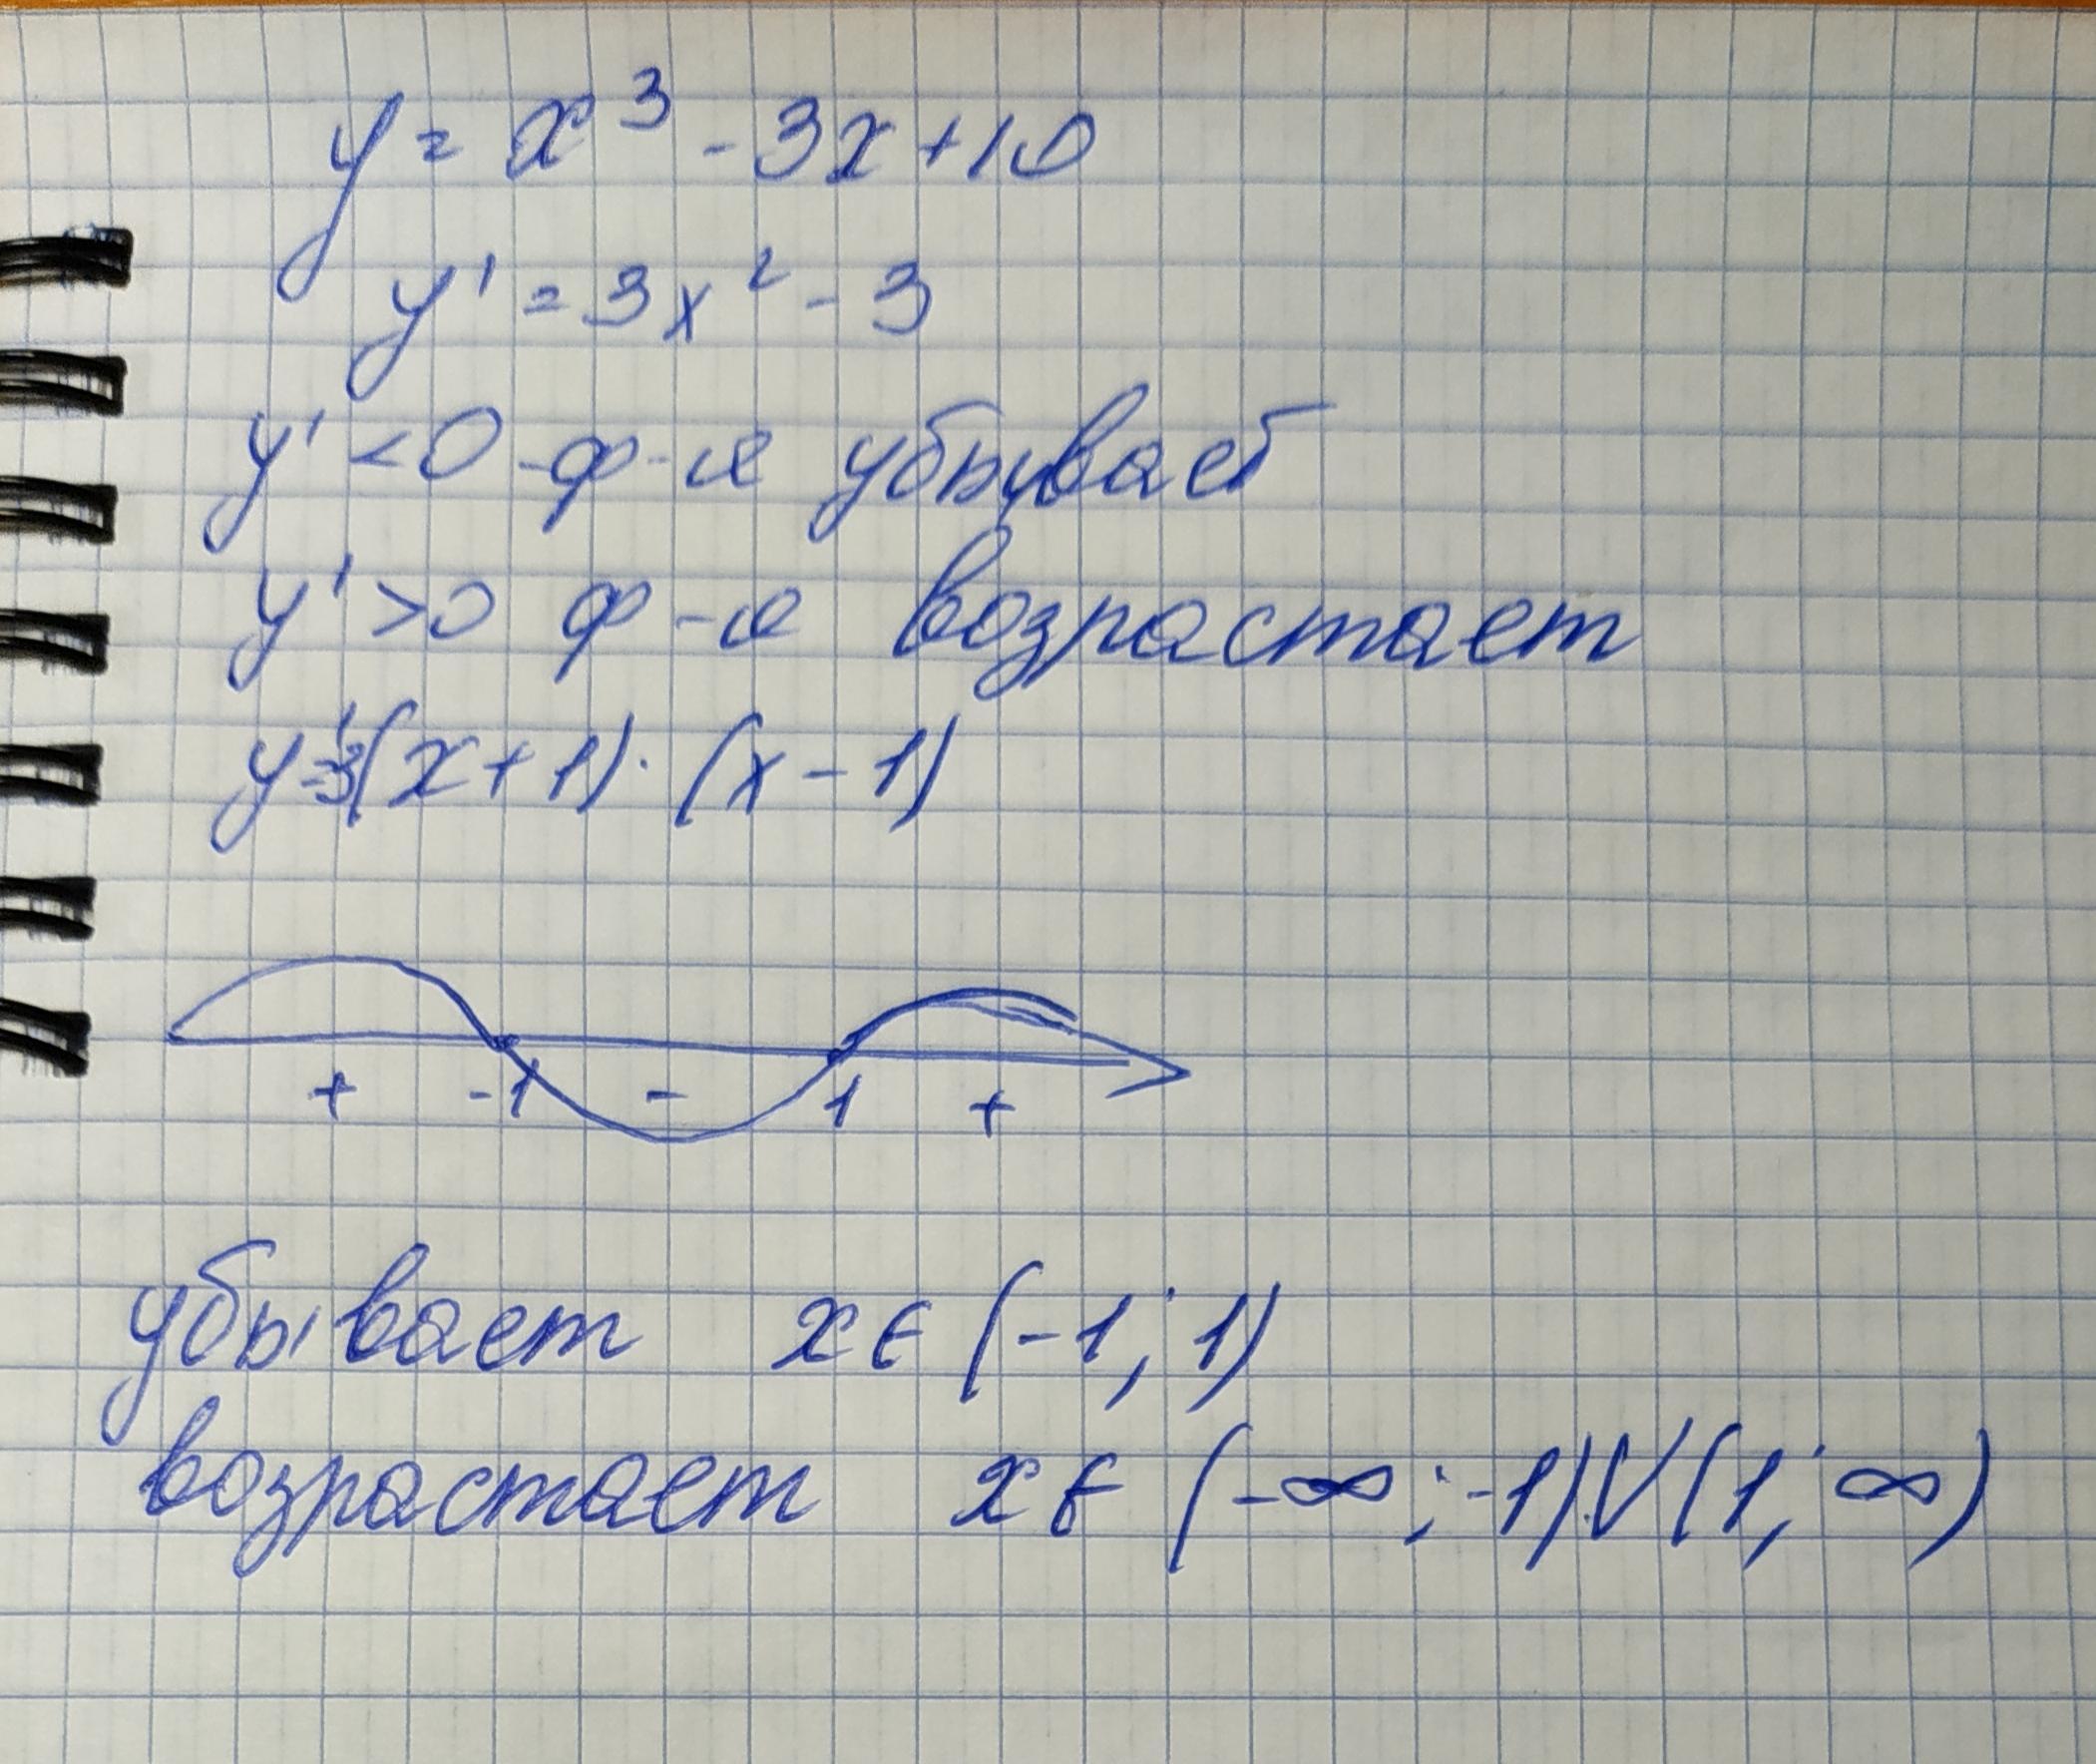 y = x³ - 3x + 10
y' = 3x² - 3
y' < 0 - ф-я убывает
y' > 0 ф-я возрастает
y' = 3(x + 1) · (x - 1)
+ -1 - 1 +
убывает x ∈ (-1; 1)
возрастает x ∈ (-∞; -1) V (1; ∞)